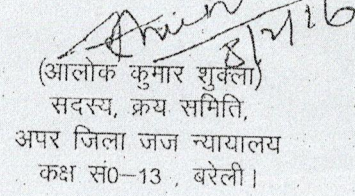 8/2/16
(आलोक कुमार शुक्ला)
सदस्य, क्रय समिति,
अपर जिला जज न्यायालय
कक्ष सं0-13 , बरेली।